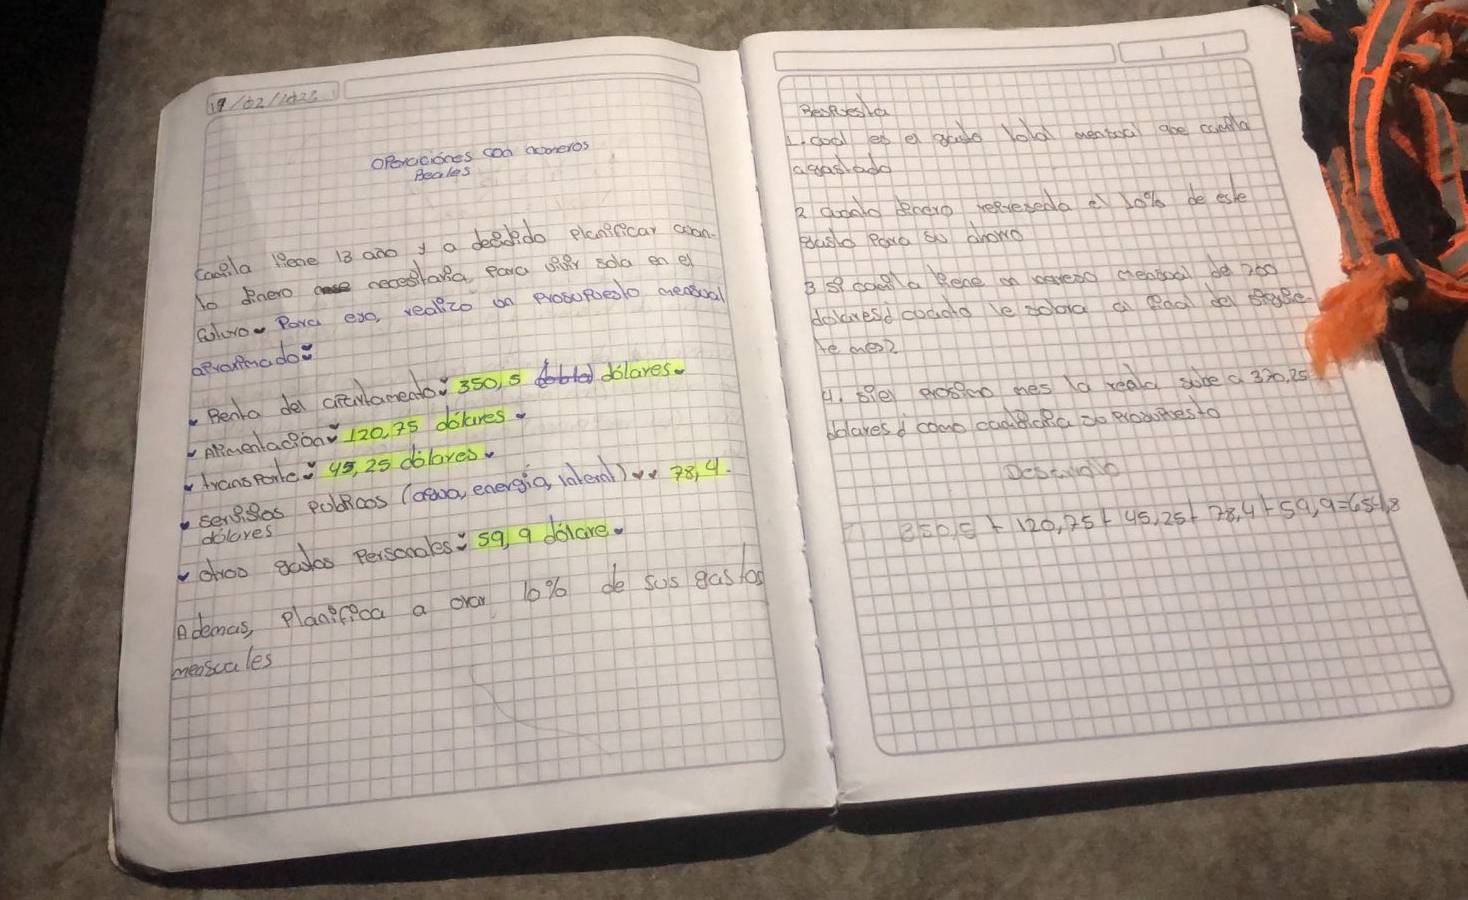 19/02/2025
Operaciónes con nomeros
Reales
Camila tiene 13 año y a decidido planificar cuan-
to dinero necesitaria para vivir sola en el
futuro. Para eso, realizo un prosopuesto mensual
aproximado:
Renta del apartamento: 350,5 dólares.
Alimentación: 120,75 dólares.
transporte: 45,25 dólares.
servisios publicos (agua, energia, internt) 78,4.
dólares
otros gastos Personales: 59,9 dólare.
Ademas, Planifica a orar 10% de sus gastos
menscuales
Respuesta
1. cual es el gasto total mensual que camila
agastado
2 cuanto dinero represeda el 10% de este
gasto Para su ahorro
3 si camila tiene un ingreso mensual de 700
dolares cuanto le sobra al final del
te mes?
4. si el prosimo mes la renta sube a 370,25
dolares como cambiaria su prosopuesto
Desarrollo
350,5 + 120,75 + 45,25 + 78,4 + 59,9 = 654,8